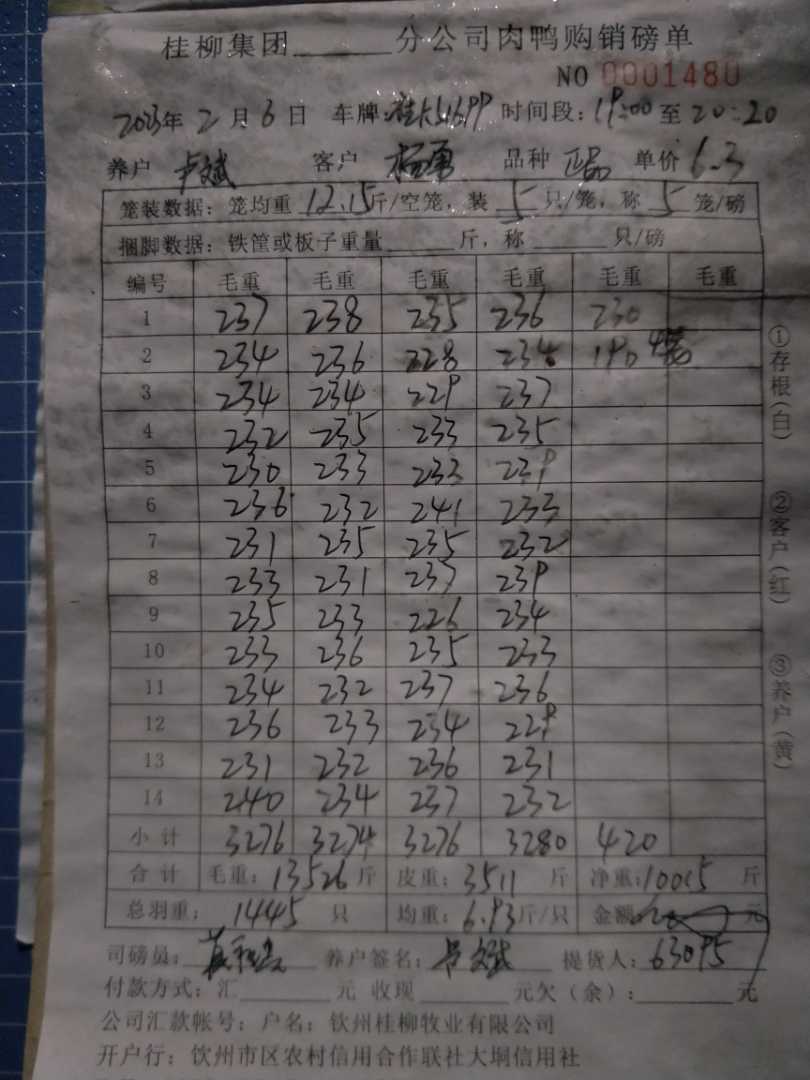 桂柳集团______分公司肉鸭购销磅单
NO 0001480
2023年2月6日 车牌: 时间段:19:00至20:20
养户 卢斌 客户 杨勇 品种 正品 单价 6.3
笼装数据:笼均重 12.15斤/空笼,装 5 只/笼,称 5 笼/磅
捆脚数据:铁筐或板子重量______斤,称______只/磅
编号 毛重 毛重 毛重 毛重 毛重 毛重
1 237 238 235 236 230
2 234 236 228 234 190 4笼
3 234 234 229 237
4 232 235 233 235
5 230 233 233 239
6 236 232 241 233
7 231 235 235 232
8 233 231 237 239
9 235 233 226 234
10 233 236 235 233
11 234 232 237 236
12 236 233 234 229
13 231 232 236 231
14 240 234 237 232
小计 3276 3274 3276 3280 420
合计 毛重:13526斤 皮重:3511 斤 净重:10015 斤
总羽重: 1445 只 均重:6.93斤/只 金额 元
司磅员: 养户签名:卢斌 提货人:63095
付款方式:汇______元 收现______元欠(余):______元
公司汇款帐号:户名:钦州桂柳牧业有限公司
开户行:饮州市区农村信用合作联社大垌信用社
①存根(白)
②客户(红)
③养户(黄)